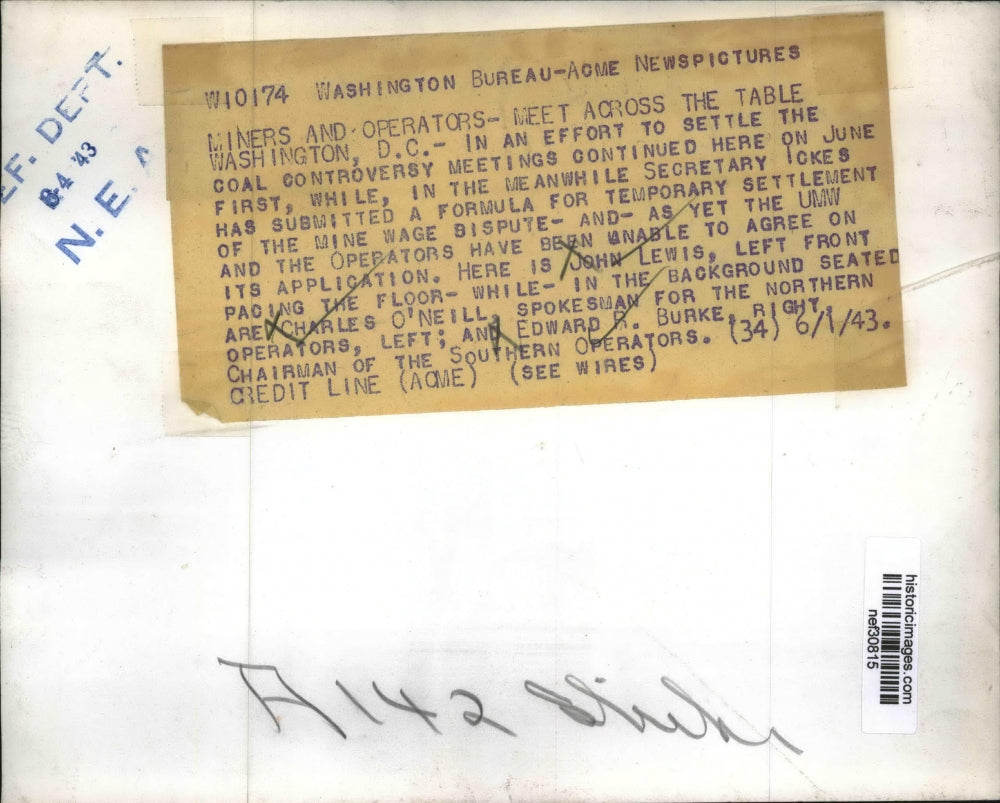 EF. DEPT.
8-4 '43
N. E. A
W10174 WASHINGTON BUREAU-ACME NEWSPICTURES
MINERS AND OPERATORS- MEET ACROSS THE TABLE
WASHINGTON, D.C.- IN AN EFFORT TO SETTLE THE
COAL CONTROVERSY MEETINGS CONTINUED HERE ON JUNE
FIRST, WHILE, IN THE MEANWHILE SECRETARY ICKES
HAS SUBMITTED A FORMULA FOR TEMPORARY SETTLEMENT
OF THE MINE WAGE DISPUTE- AND- AS YET THE UMW
AND THE OPERATORS HAVE BEEN UNABLE TO AGREE ON
ITS APPLICATION. HERE IS JOHN LEWIS, LEFT FRONT
PACING THE FLOOR- WHILE- IN THE BACKGROUND SEATED
ARE CHARLES O'NEILL, SPOKESMAN FOR THE NORTHERN
OPERATORS, LEFT; AND EDWARD R. BURKE, RIGHT,
CHAIRMAN OF THE SOUTHERN OPERATORS. (34) 6/1/43.
CREDIT LINE (ACME) (SEE WIRES)
historicimages.com
nef30815
A 142 Strike